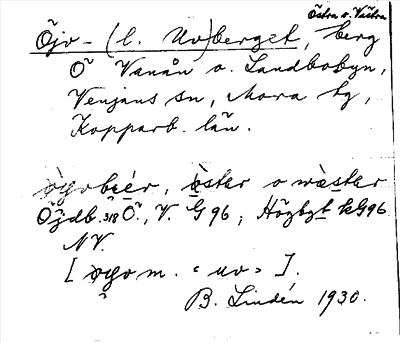 Östra o. Västra
Öjv- (l. Uv)berget, berg
Ö Vanån o. Landbobyn,
Venjans sn, Mora tg,
Kopparb. län.
öster o wäster
Öjdb. 318 Ö., V. G 96; Högbyt kG96
NV.
m. "uv" ].
B. Lindén 1930.